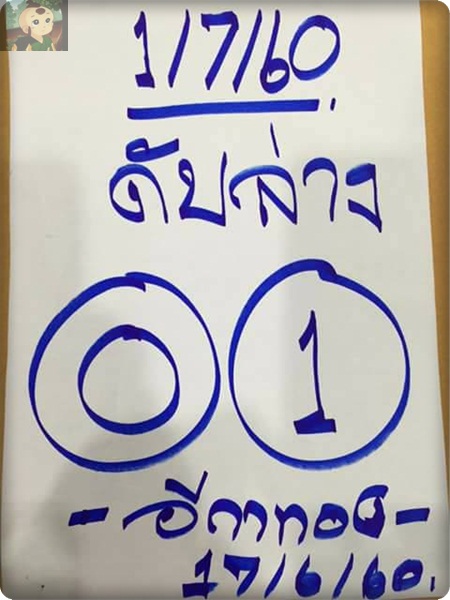 1/7/60
ดับล่าง
0 1
- อีกาทอง -
17/6/60.